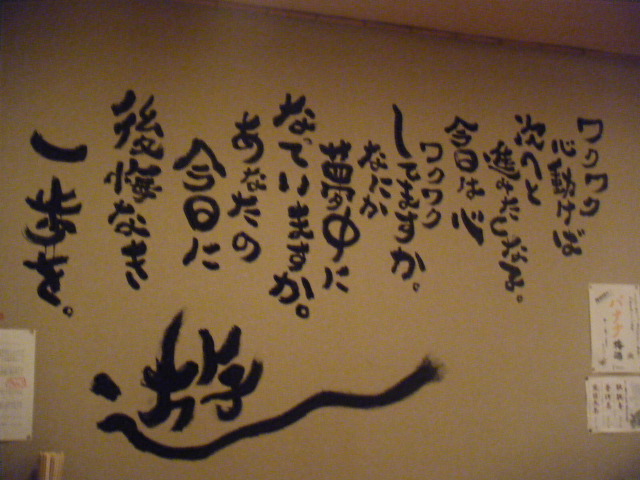 ワクワク
心動けば
次々と
進みだします。
今日は心
ワクワク
してますか。
なにか
夢中に
なっていますか。
あなたの
今日に
後悔なき
一歩を。
遊
バナナ
梅酒